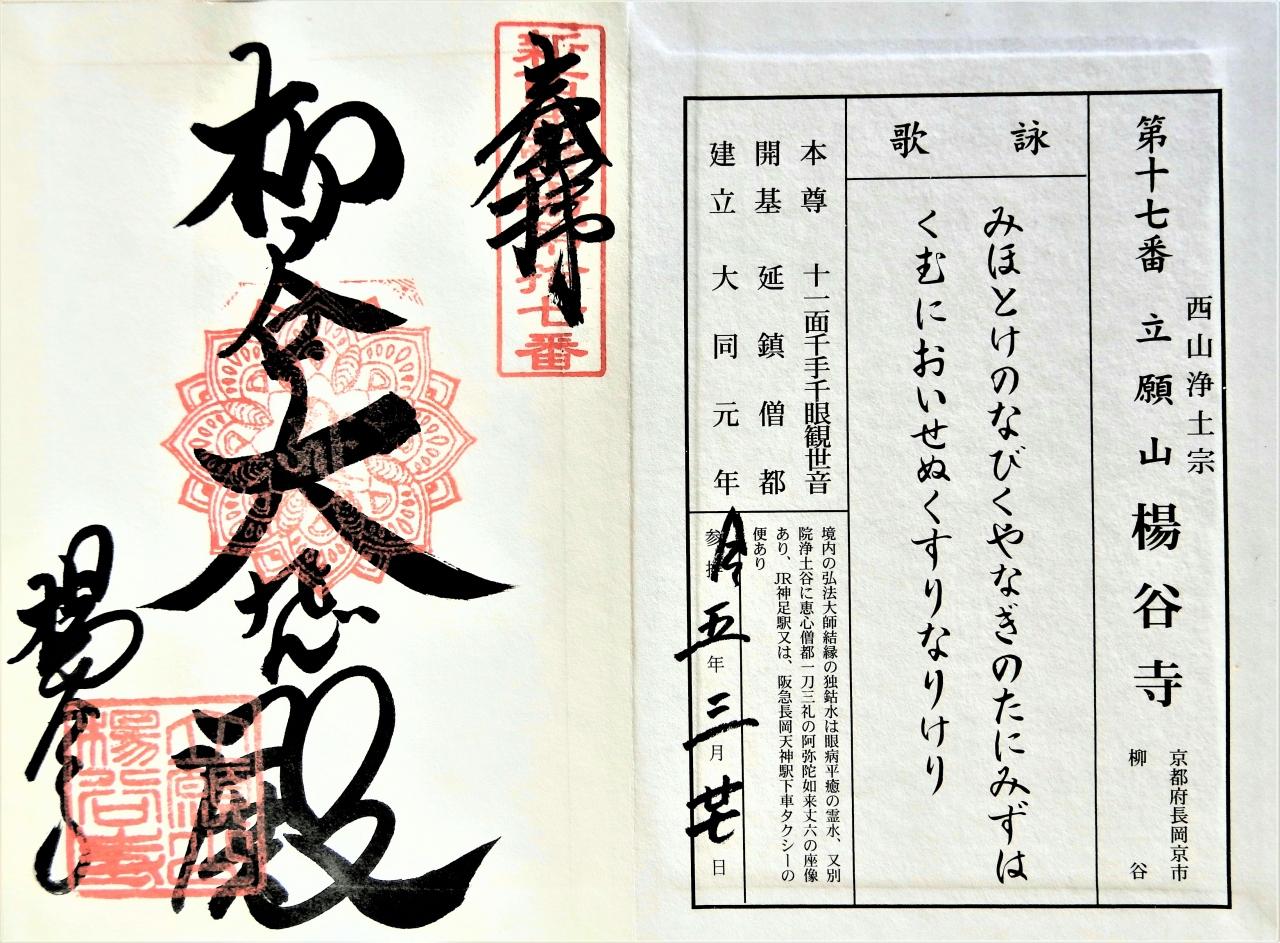 西山浄土宗
第十七番 立願山 楊谷寺
京都府長岡京市
柳谷
詠歌
みほとけのなびくやなぎのたにみずは
くむにおいせぬくすりなりけり
本尊 十一面千手千眼観世音
開基 延鎮僧都
建立 大同元年
境内の弘法大師結縁の独鈷水は眼病平癒の霊水、又別
院浄土谷に恵心僧都一刀三礼の阿弥陀如来丈六の座像
あり、JR神足駅又は、阪急長岡天神駅下車タクシーの
便あり
参拝 令五年三月廿七日
奉拝
拾七番
柳谷大悲殿
楊谷寺
立願山
楊谷寺